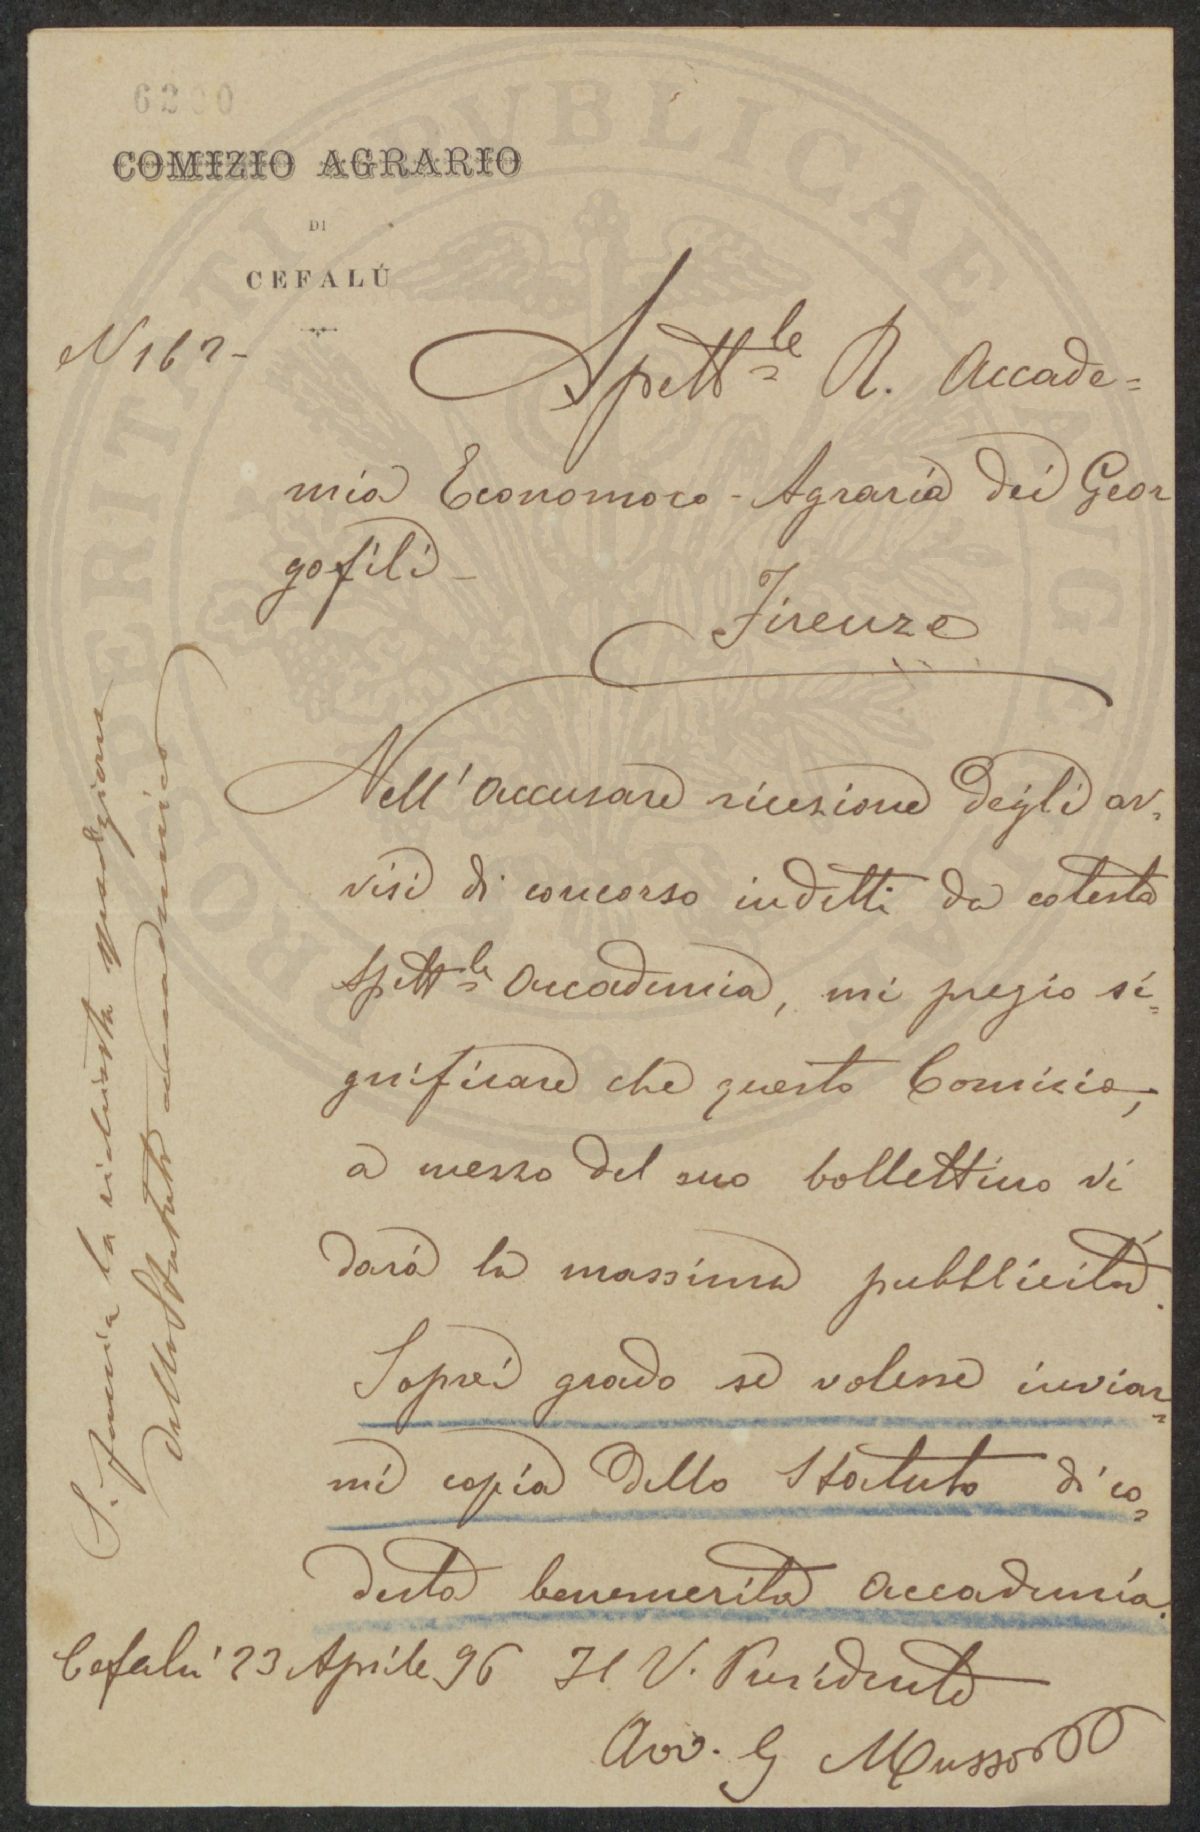 6200
COMIZIO AGRARIO
DI
CEFALÚ
N 162-
Spett.le R. Accade=
mia Economoco-Agraria dei Geor
gofili-
Firenze
Nell'accusare ricezione degli av=
visi di concorso indetti da cotesta
Spett.le Accademia, mi pregio si=
gnificare che questo Comizio,
a mezzo del suo bollettino vi
darà la massima pubblicità.
Saprei grado se volesse inviar=
mi copia dello Statuto di co=
desta benemerita Accademia.
Cefalù 23 Aprile 96 Il V. Presidente
Avv. G Musso
S. Invia la richiesta
dello Statuto accademico
PROSPERITATI PUBLICAE AUGENDAE